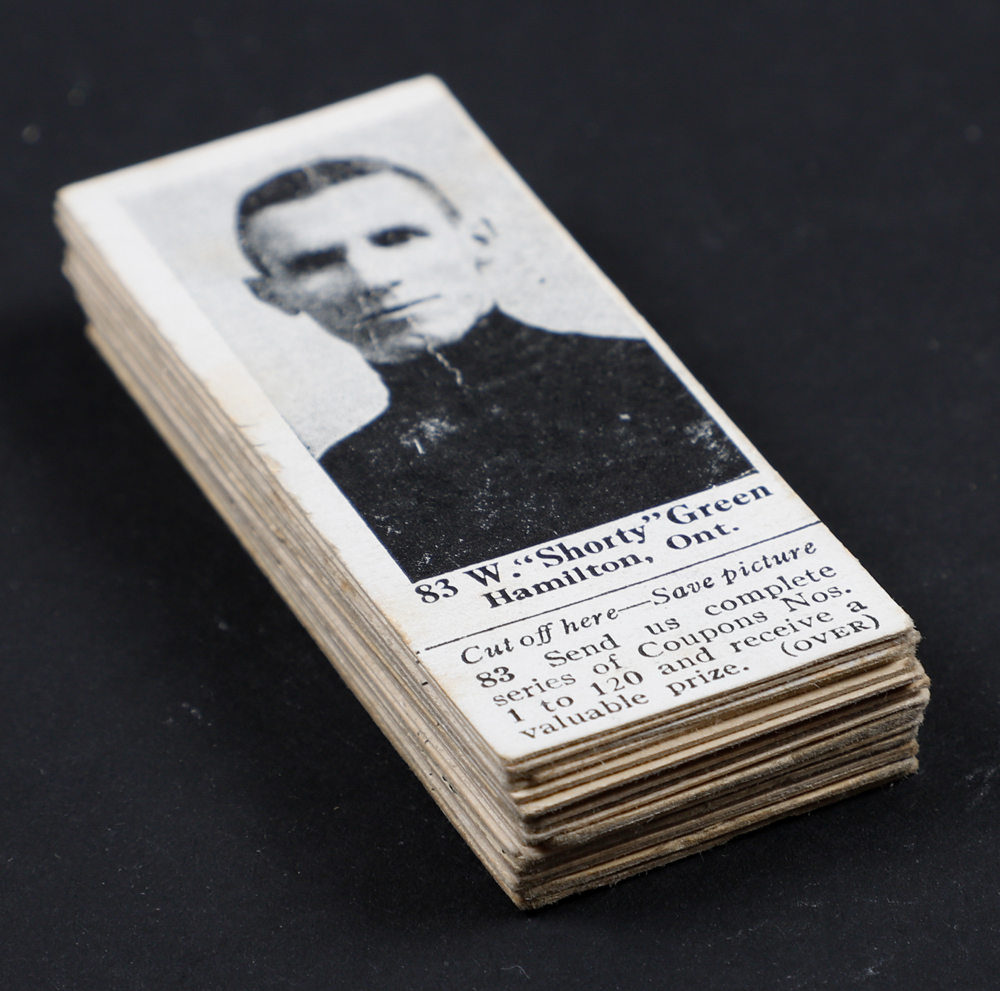 83 W. “Shorty” Green
Hamilton, Ont.
Cut off here—Save picture
83 Send us complete
series of Coupons Nos.
1 to 120 and receive a
valuable prize. (OVER)